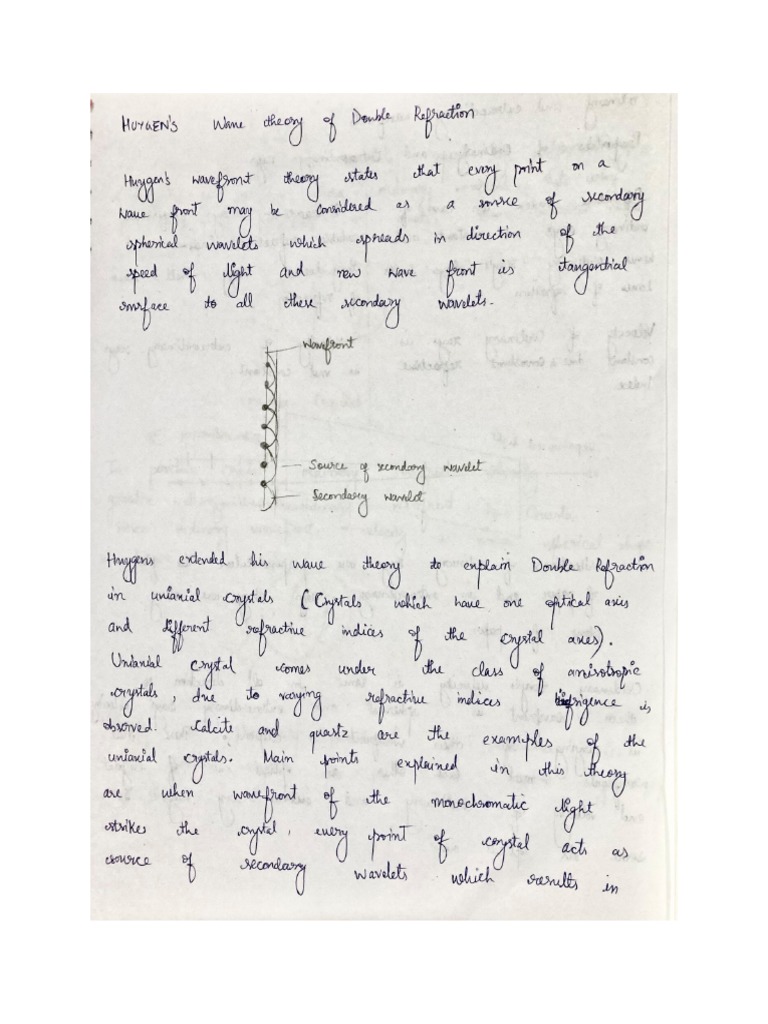 HUYGEN'S Wave theory of Double Refraction
Huygen's wavefront theory states that every point on a
wave front may be considered as a source of secondary
spherical wavelets which spreads in direction of the
speed of light and new wave front is tangential
surface to all these secondary wavelets.
Wavefront
Source of secondary wavelet
Secondary wavelet
Huygens extended his wave theory to explain Double Refraction
in uniaxial crystals (Crystals which have one optical axis
and different refractive indices of the crystal axes).
Uniaxial crystal comes under the class of anisotropic
crystals, due to varying refractive indices is
observed. Calcite and quartz are the examples of the
uniaxial crystals. Main points explained in this theory
are when wavefront of the monochromatic light
strikes the crystal, every point of crystal acts as
source of secondary wavelets which results in